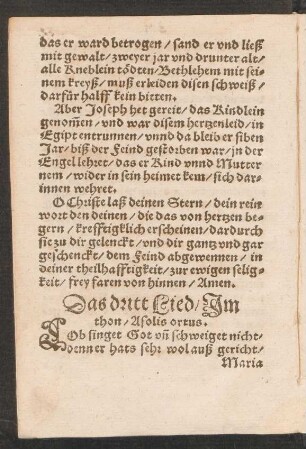 das er ward betrogen / sand er vnd ließ
mit gewalt / zweyer jar vnd drunter alt /
alle Kneblein tödten / Bethlehem mit sei-
nem kreyß / muß erleiden disen schweiß /
darfür halff kein bitten.
Aber Joseph het gereit / das Kindlein
genom̃en / vnd war disem hertzenleid / in
Egipt entrunnen / vnnd da bleib er siben
Jar / biß der Feind gestorben war / jn der
Engel lehret / das er Kind vnnd Mutter
nem / wider in sein heimet kem / sich dar-
innen wehret.
O Christe laß deinen Stern / dein rein
wort den deinen / die das von hertzen be-
gern / krefftigklich erscheinen / dardurch
sie zu dir gelenckt / vnd dir gantz vnd gar
geschenckt / dem Feind abgewennen / in
deiner theilhafftigkeit / zur ewigen selig-
keit / frey faren von hinnen / Amen.
Das dritt Lied / Im
thon / A solis ortus.
LOb singet Got vñ schweiget nicht /
Doenner hats sehr wol auß gericht /
Maria